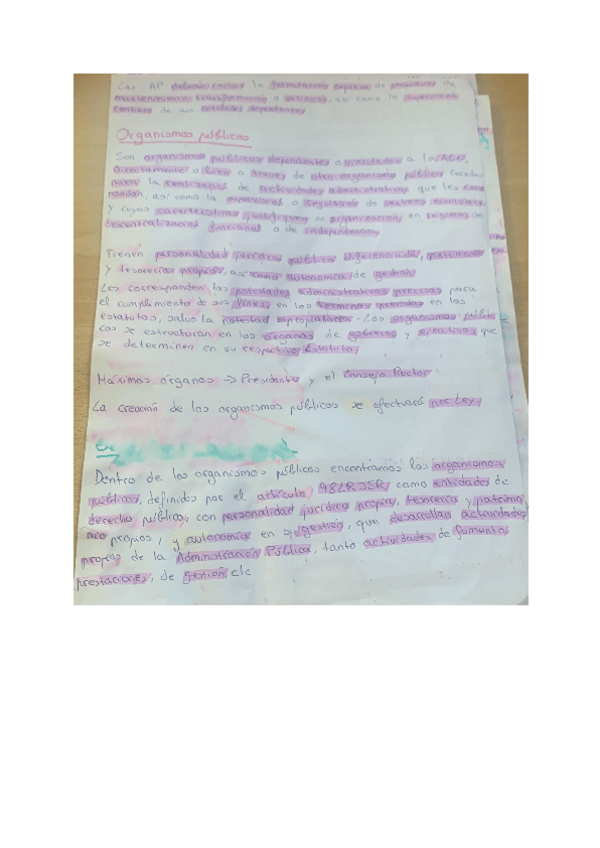 Las AP deberán incluir la formulación expresa de propuestas de
mantenimiento, transformación o extinción, así como la supervisión
continua de sus entidades dependientes
Organismos públicos
Son organismos públicos dependientes o vinculados a la AGE,
Directamente o bien a través de otro organismo público creados
para la realización de actividades administrativas que les
así como la supervisión o regulación de sectores económicos,
y cuyas características justifiquen su organización en régimen de
descentralización funcional o de independencia
Tienen personalidad jurídica pública diferenciada, patrimonio
y tesorería propios, así como autonomía de gestión
Les corresponden las potestades administrativas precisas para
el cumplimiento de sus fines, en los términos previstos en los
estatutos, salvo la potestad expropiatoria. Los organismos públi
cos se estructuran en los órganos de gobierno y ejecutivos que
se determinen en su respectivo Estatuto.
Máximos órganos -> Presidente y el Consejo Rector
La creación de los organismos públicos se efectuará por Ley.
Dentro de los organismos públicos encontramos los organismos
públicos, definidos por el artículo 98 LRJSP, como entidades de
derecho público, con personalidad jurídica propia, tesorería y patrimo
nio propios, y autonomía en su gestión, que desarrollan actividades
propias de la Administración Pública, tanto actividades de fomento,
prestaciones, de gestión etc